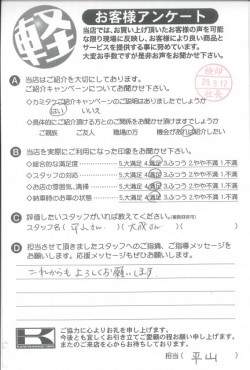 軽
お客様アンケート
当店では、お買い上げ頂いたお客様の声を可能
な限り現場に反映し、お客様により良い商品と
サービスを提供する事に努めています。
大変お手数ですが是非お声をお聞かせ下さい。
A 当店はご紹介を大切にしております。
ご紹介キャンペーンについてお聞かせ下さい。
◇カミタケご紹介キャンペーンのご説明はありましたでしょうか
はい いいえ
◇具体的にご紹介頂ける方とのご関係をお聞かせ頂けますでしょうか
ご親族 ご友人 職場の方 機会があれば紹介したい
B 当店を実際にご利用になった印象をお聞かせ下さい。
◇総合的な満足度 5.大満足 4.満足 3.ふつう 2.やや不満 1.不満
◇スタッフの対応 5.大満足 4.満足 3.ふつう 2.やや不満 1.不満
◇お店の雰囲気、清掃 5.大満足 4.満足 3.ふつう 2.やや不満 1.不満
◇納車時のお車の状態 5.大満足 4.満足 3.ふつう 2.やや不満 1.不満
C 評価したいスタッフがいれば教えてください。(複数回答可)
スタッフ名
D 担当させて頂きましたスタッフへのご指摘、ご指導メッセージを
お願いします。応援メッセージもぜひお願いします。
これからもよろしくお願いします
K
ご協力に心よりお礼を申し上げます。
今後とも宜しくお引き立てご愛顧の程お願い申し上げます。
またのご来店を心からお待ちしております。
担当（平山）